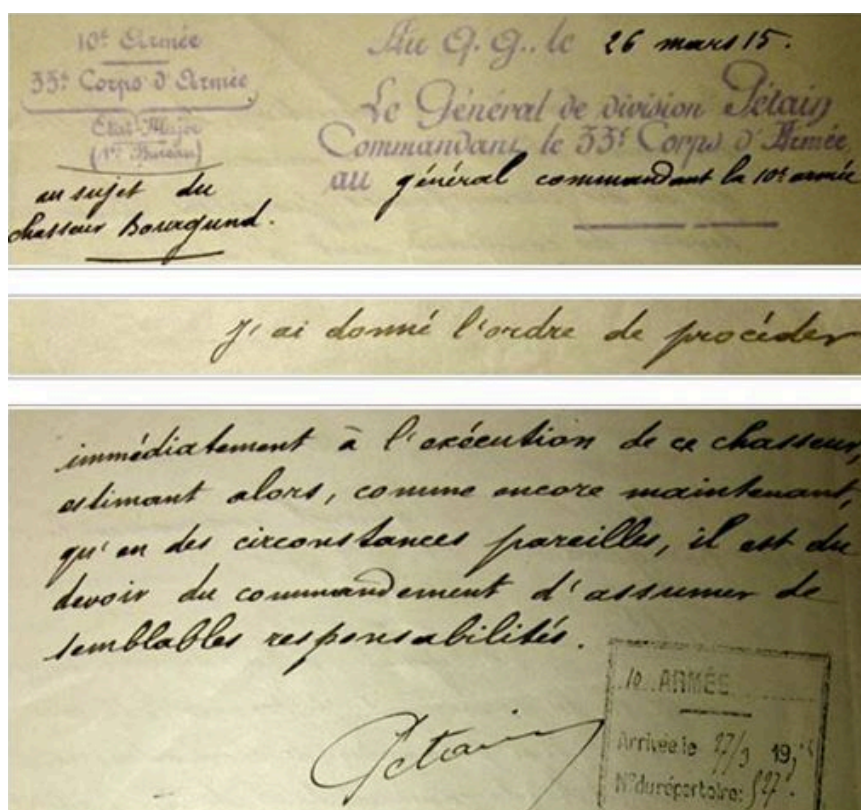 10e Armée
33e Corps d'Armée
État-Major
(1er Bureau)
au sujet du
chasseur Bourgund.
Au Q. G., le 26 mars 15.
Le Général de division Pétain
Commandant le 33e Corps d'Armée
au général commandant la 10e armée
j'ai donné l'ordre de procéder
immédiatement à l'exécution de ce chasseur,
estimant alors, comme encore maintenant,
qu'en des circonstances pareilles, il est du
devoir du commandement d'assumer de
semblables responsabilités.
Pétain
10 ARMÉE
Arrivée le 27/3 19
N° du répertoire: 527